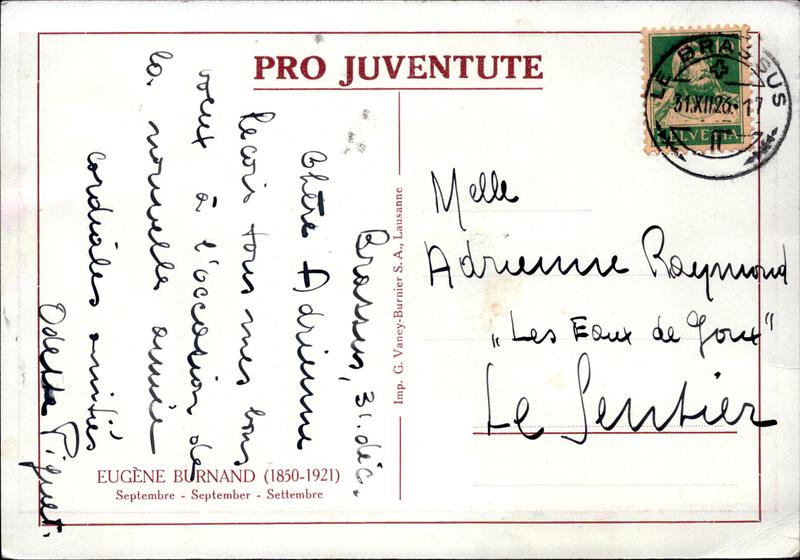 PRO JUVENTUTE
LE BRASSUS
31.XII.26.-17
HELVETIA
Brassus, 31. déc.
Chère Adrienne
Reçois tous mes bons
vœux à l'occasion de
la nouvelle année
cordiales amitiés
Odette Piguet.
Imp. G. Vaney-Burnier S. A., Lausanne
Melle
Adrienne Raymond
„Les Eaux de Goux"
Le Sentier
EUGÈNE BURNAND (1850-1921)
Septembre - September - Settembre